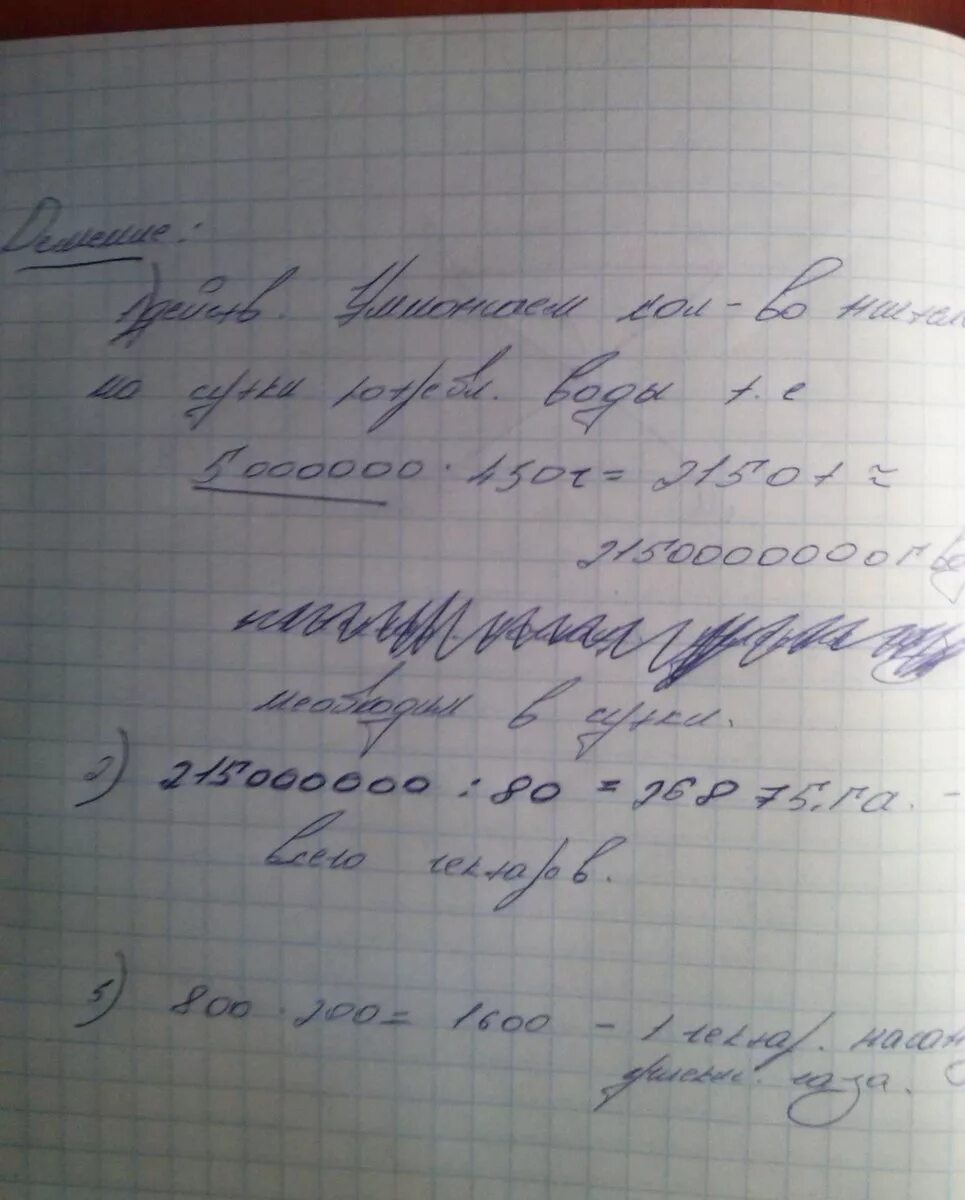 Решение:
1) действ. Умножаем кол-во
на сутки потребл. воды т. е
5000000 · 430г = 2150 т ≈
2150000000 г
необходим в сутки.
2) 215000000 : 80 = 26875. га. -
всего гектаров.
5) 800 · 200 = 1600 - 1 гектар.
газа.